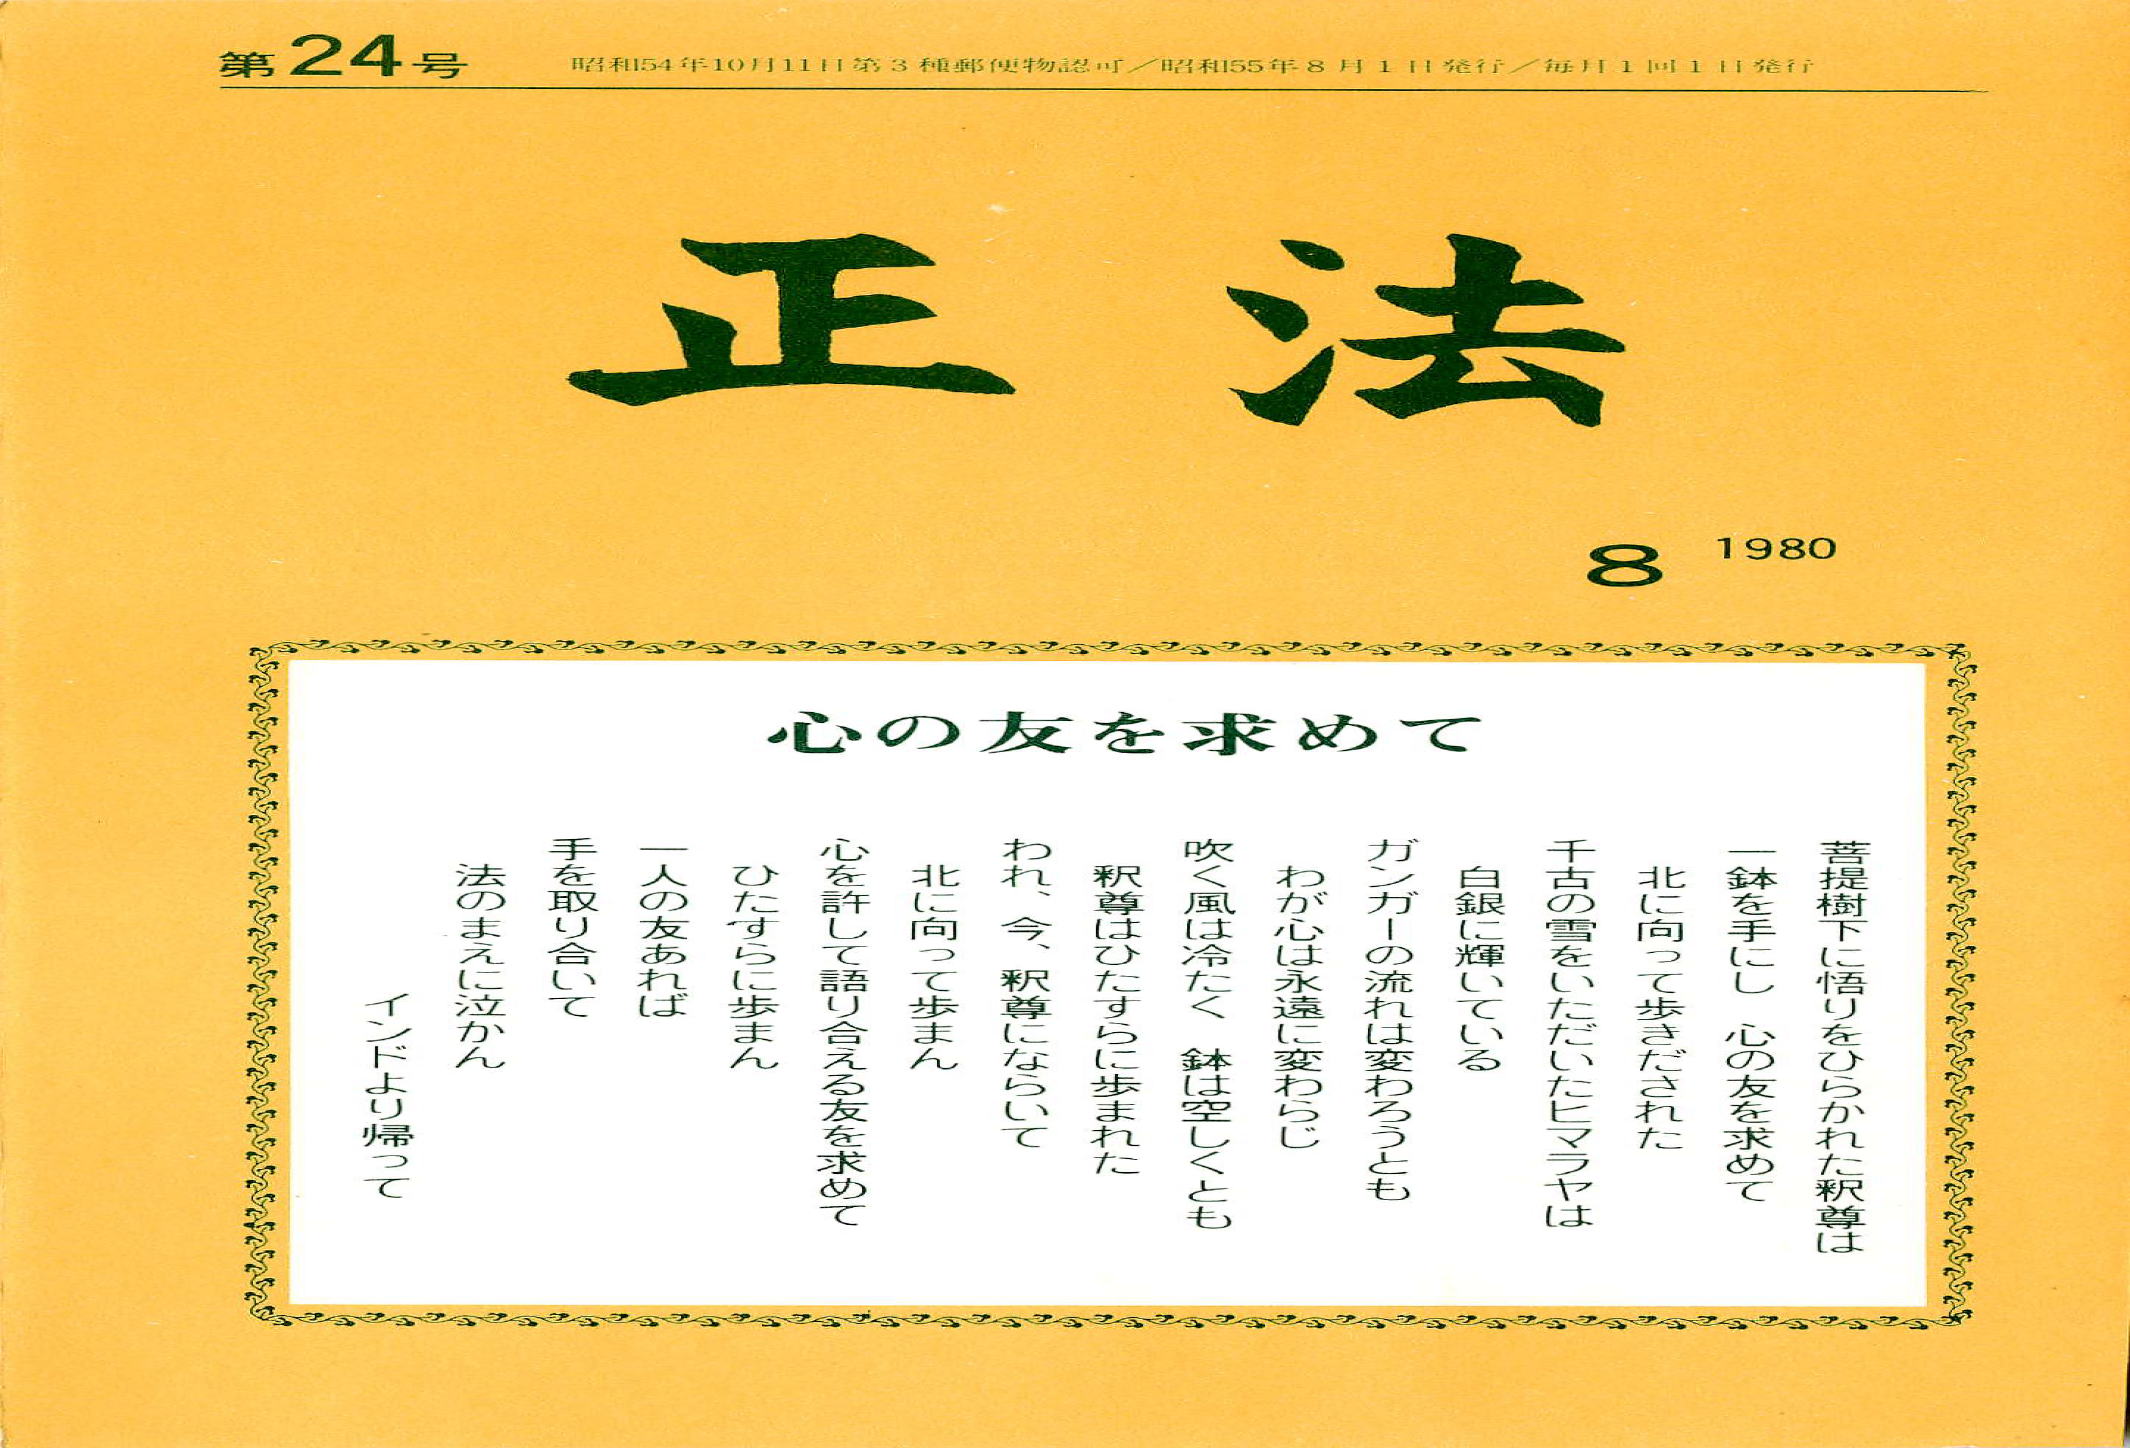 第24号　昭和54年10月11日第3種郵便物認可／昭和55年8月1日発行／毎月1回1日発行
正法
8 1980
心の友を求めて
菩提樹下に悟りをひらかれた釈尊は
一鉢を手にし　心の友を求めて
北に向って歩きだされた
千古の雪をいただいたヒマラヤは
白銀に輝いている
ガンガーの流れは変わろうとも
わが心は永遠に変わらじ
吹く風は冷たく　鉢は空しくとも
釈尊はひたすらに歩まれた
われ、今、釈尊にならいて
北に向って歩まん
心を許して語り合える友を求めて
ひたすらに歩まん
一人の友あれば
手を取り合いて
法のまえに泣かん
インドより帰って